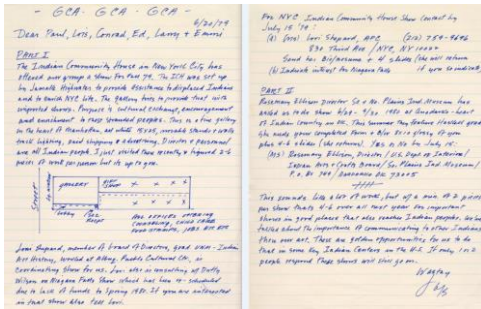 - GCA - GCA - GCA -
6/20/79
Dear Paul, Lois, Conrad, Ed, Larry +
PART I
The Indian Community House in New York City has
offered our group a show for Fall 79. The ICH was set up
by to provide assistance to displaced Indians
and to enrich NYC life. The gallery tries to break that with
shows. Purpose is cultural exchange, encouragement
and enrichment to these people. This is a fine gallery
in the heart of Manhattan, all white 15x25, movable stands + walls
track lighting, and shipping + advertising. Director + personnel
are all Indian people. I just visited there recently + figured 2-4
pieces of work per person but its up to you.
STREET
GALLERY
GIFT SHOP
x x x x
x x x x
LOBBY
ALL OFFICES OFFERING
COUNSELING, CHILD CARE
FOOD STAMPS, JOBS ETC ETC
Lori Shepard, member of board of Directors, grad - Indian
Art History, worked at Albany, Pueblo Cultural Ctr, is
coordinating show for us. Lori also is consulting w/ Duffy
Wilson on Niagara Falls Show which has been re-scheduled
due to lack of funds to Spring 1980. If you are interested
in that show also tell Lori.
For NYC Indian Community House Show contact by
July 15 '79:
(a) Lori Shepard, APC (212) 759-9696
830 Third Ave / NY, NY 10022
Send to: Bio/resume + 4 slides (she will return
(b) Indicate interest for Niagara Falls if you so indicate)
PART II
Rosemary Ellison Director So. Plains Ind Museum has
asked us to do show 1980 at Anadarko - heart
of Indian Country in OK. This summer they feature Heckel good
She needs your completed Form + B/W 8x10 glossy of you
plus 4-6 slides (she returns). Yes or No by July 15:
(Ms) Rosemary Ellison, Director / U.S. Dept of Interior /
Indian Arts + Crafts Board / So. Plains Ind Museum /
P.O. Bx 749 / Anadarko OK 73005
This sounds like a lot of work, but if a min of 2 pieces
per show thats 4-6 over all next year for important
shows in good places that also reaches Indian peoples. We've
talked about the importance of communicating to other Indians
thru our art. These are golden opportunities for us to do
that in some key Indian Centers in the U.S. If only 1 or 2
people respond these shows will still go on.